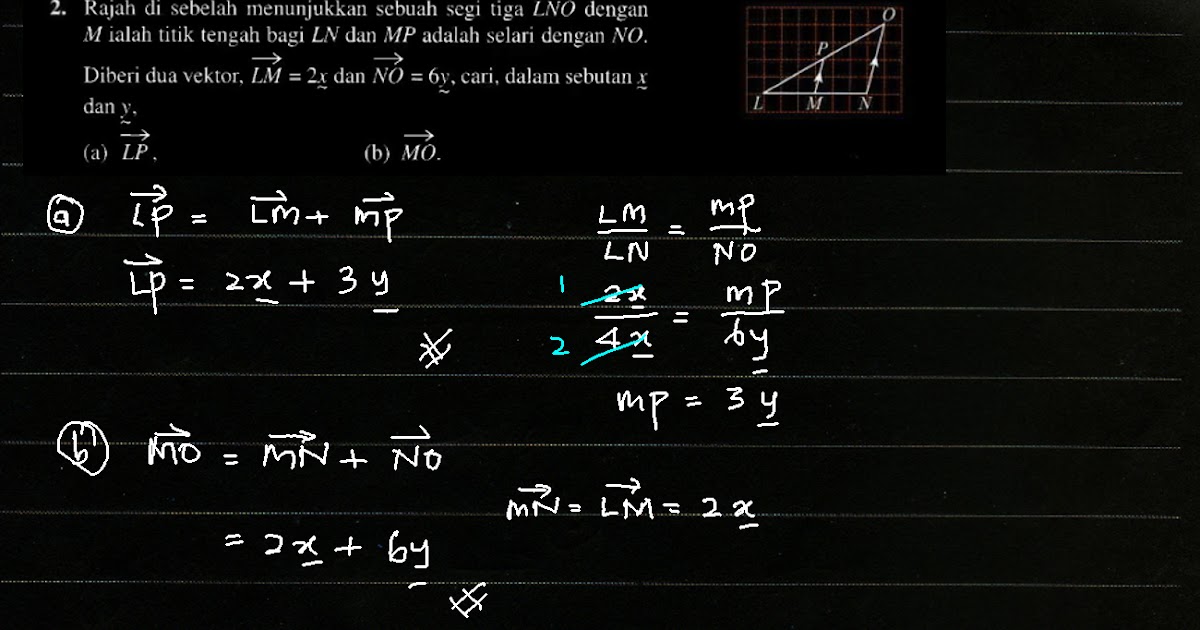 2. Rajah di sebelah menunjukkan sebuah segi tiga LNO dengan
M ialah titik tengah bagi LN dan MP adalah selari dengan NO.
Diberi dua vektor, LM⃗ = 2x̰ dan NO⃗ = 6y̰, cari, dalam sebutan x̰
dan y̰,
(a) LP⃗. (b) MO⃗.
O
P
L M N
(a) LP⃗ = LM⃗ + MP⃗
LP⃗ = 2x̲ + 3y̲
LM/LN = MP/NO
1
2x̲/4x̲ = MP/6y̲
2
MP = 3y̲
(b) MO⃗ = MN⃗ + NO⃗
MN⃗ = LM⃗ = 2x̲
= 2x̲ + 6y̲